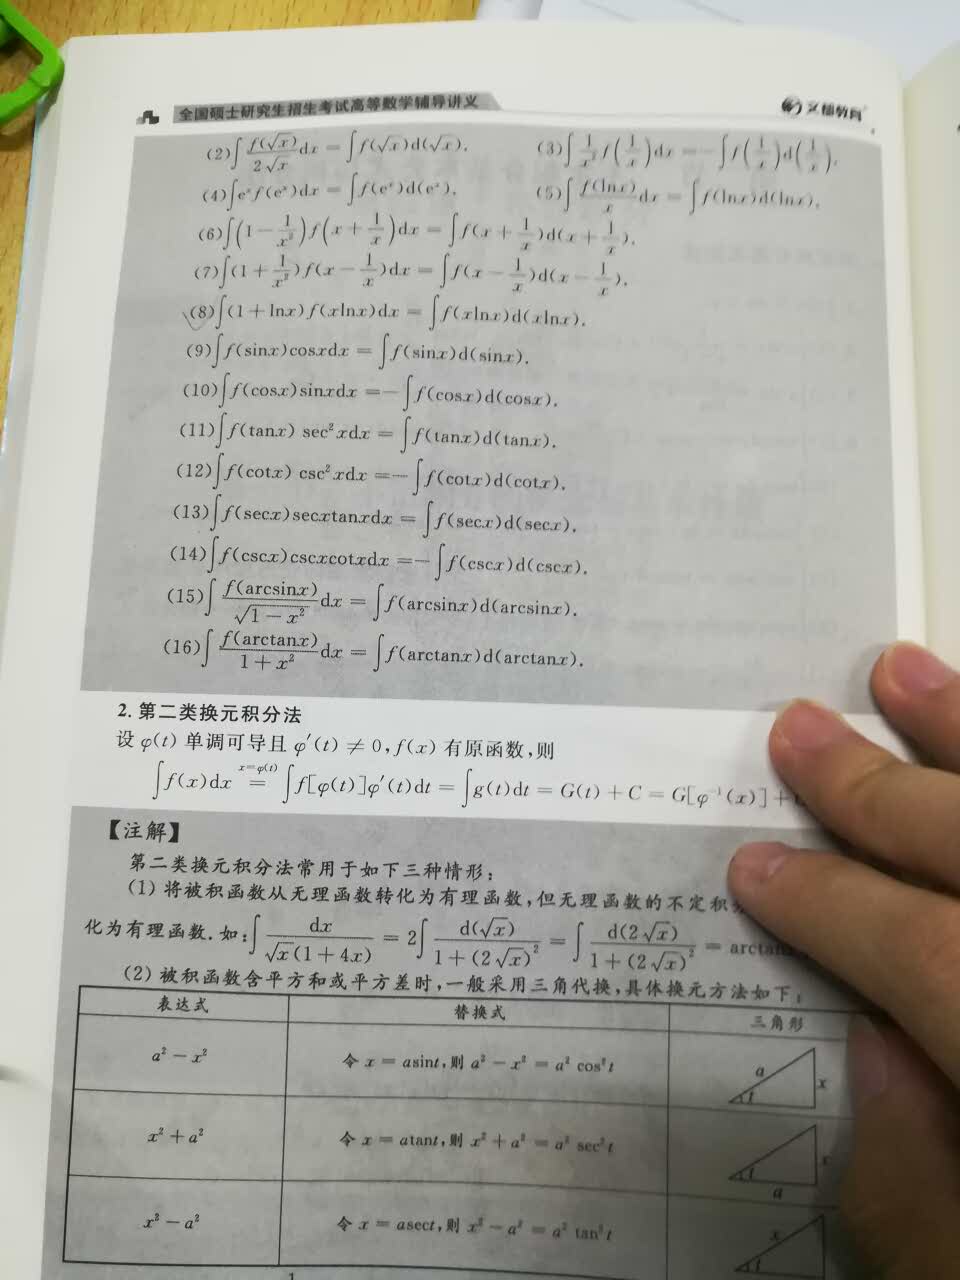 全国硕士研究生招生考试高等数学辅导讲义 文都教育
(2)∫ f(√x)/(2√x) dx = ∫f(√x)d(√x). (3)∫ 1/x² f(1/x)dx = −∫f(1/x)d(1/x).
(4)∫eˣf(eˣ)dx = ∫f(eˣ)d(eˣ). (5)∫ f(lnx)/x dx = ∫f(lnx)d(lnx).
(6)∫(1 − 1/x²)f(x + 1/x)dx = ∫f(x + 1/x)d(x + 1/x).
(7)∫(1 + 1/x²)f(x − 1/x)dx = ∫f(x − 1/x)d(x − 1/x).
(8)∫(1 + lnx)f(xlnx)dx = ∫f(xlnx)d(xlnx).
(9)∫f(sinx)cosxdx = ∫f(sinx)d(sinx).
(10)∫f(cosx)sinxdx = −∫f(cosx)d(cosx).
(11)∫f(tanx) sec²xdx = ∫f(tanx)d(tanx).
(12)∫f(cotx) csc²xdx = −∫f(cotx)d(cotx).
(13)∫f(secx)secxtanxdx = ∫f(secx)d(secx).
(14)∫f(cscx)cscxcotxdx = −∫f(cscx)d(cscx).
(15)∫ f(arcsinx)/√(1 − x²) dx = ∫f(arcsinx)d(arcsinx).
(16)∫ f(arctanx)/(1 + x²) dx = ∫f(arctanx)d(arctanx).
2. 第二类换元积分法
设 φ(t) 单调可导且 φ′(t) ≠ 0, f(x) 有原函数, 则
∫f(x)dx =(x=φ(t)) ∫f[φ(t)]φ′(t)dt = ∫g(t)dt = G(t) + C = G[φ⁻¹(x)] +
【注解】
第二类换元积分法常用于如下三种情形:
(1) 将被积函数从无理函数转化为有理函数, 但无理函数的不定积
化为有理函数. 如: ∫ dx/(√x(1 + 4x)) = 2∫ d(√x)/(1 + (2√x)²) = ∫ d(2√x)/(1 + (2√x)²) =
(2) 被积函数含平方和或平方差时, 一般采用三角代换, 具体换元方法如下:
表达式 替换式 三角形
a² − x² 令 x = asint, 则 a² − x² = a² cos²t a x t
x² + a² 令 x = atant, 则 x² + a² = a² sec²t t a
x² − a² 令 x = asect, 则 x² − a² = a² tan²t x t